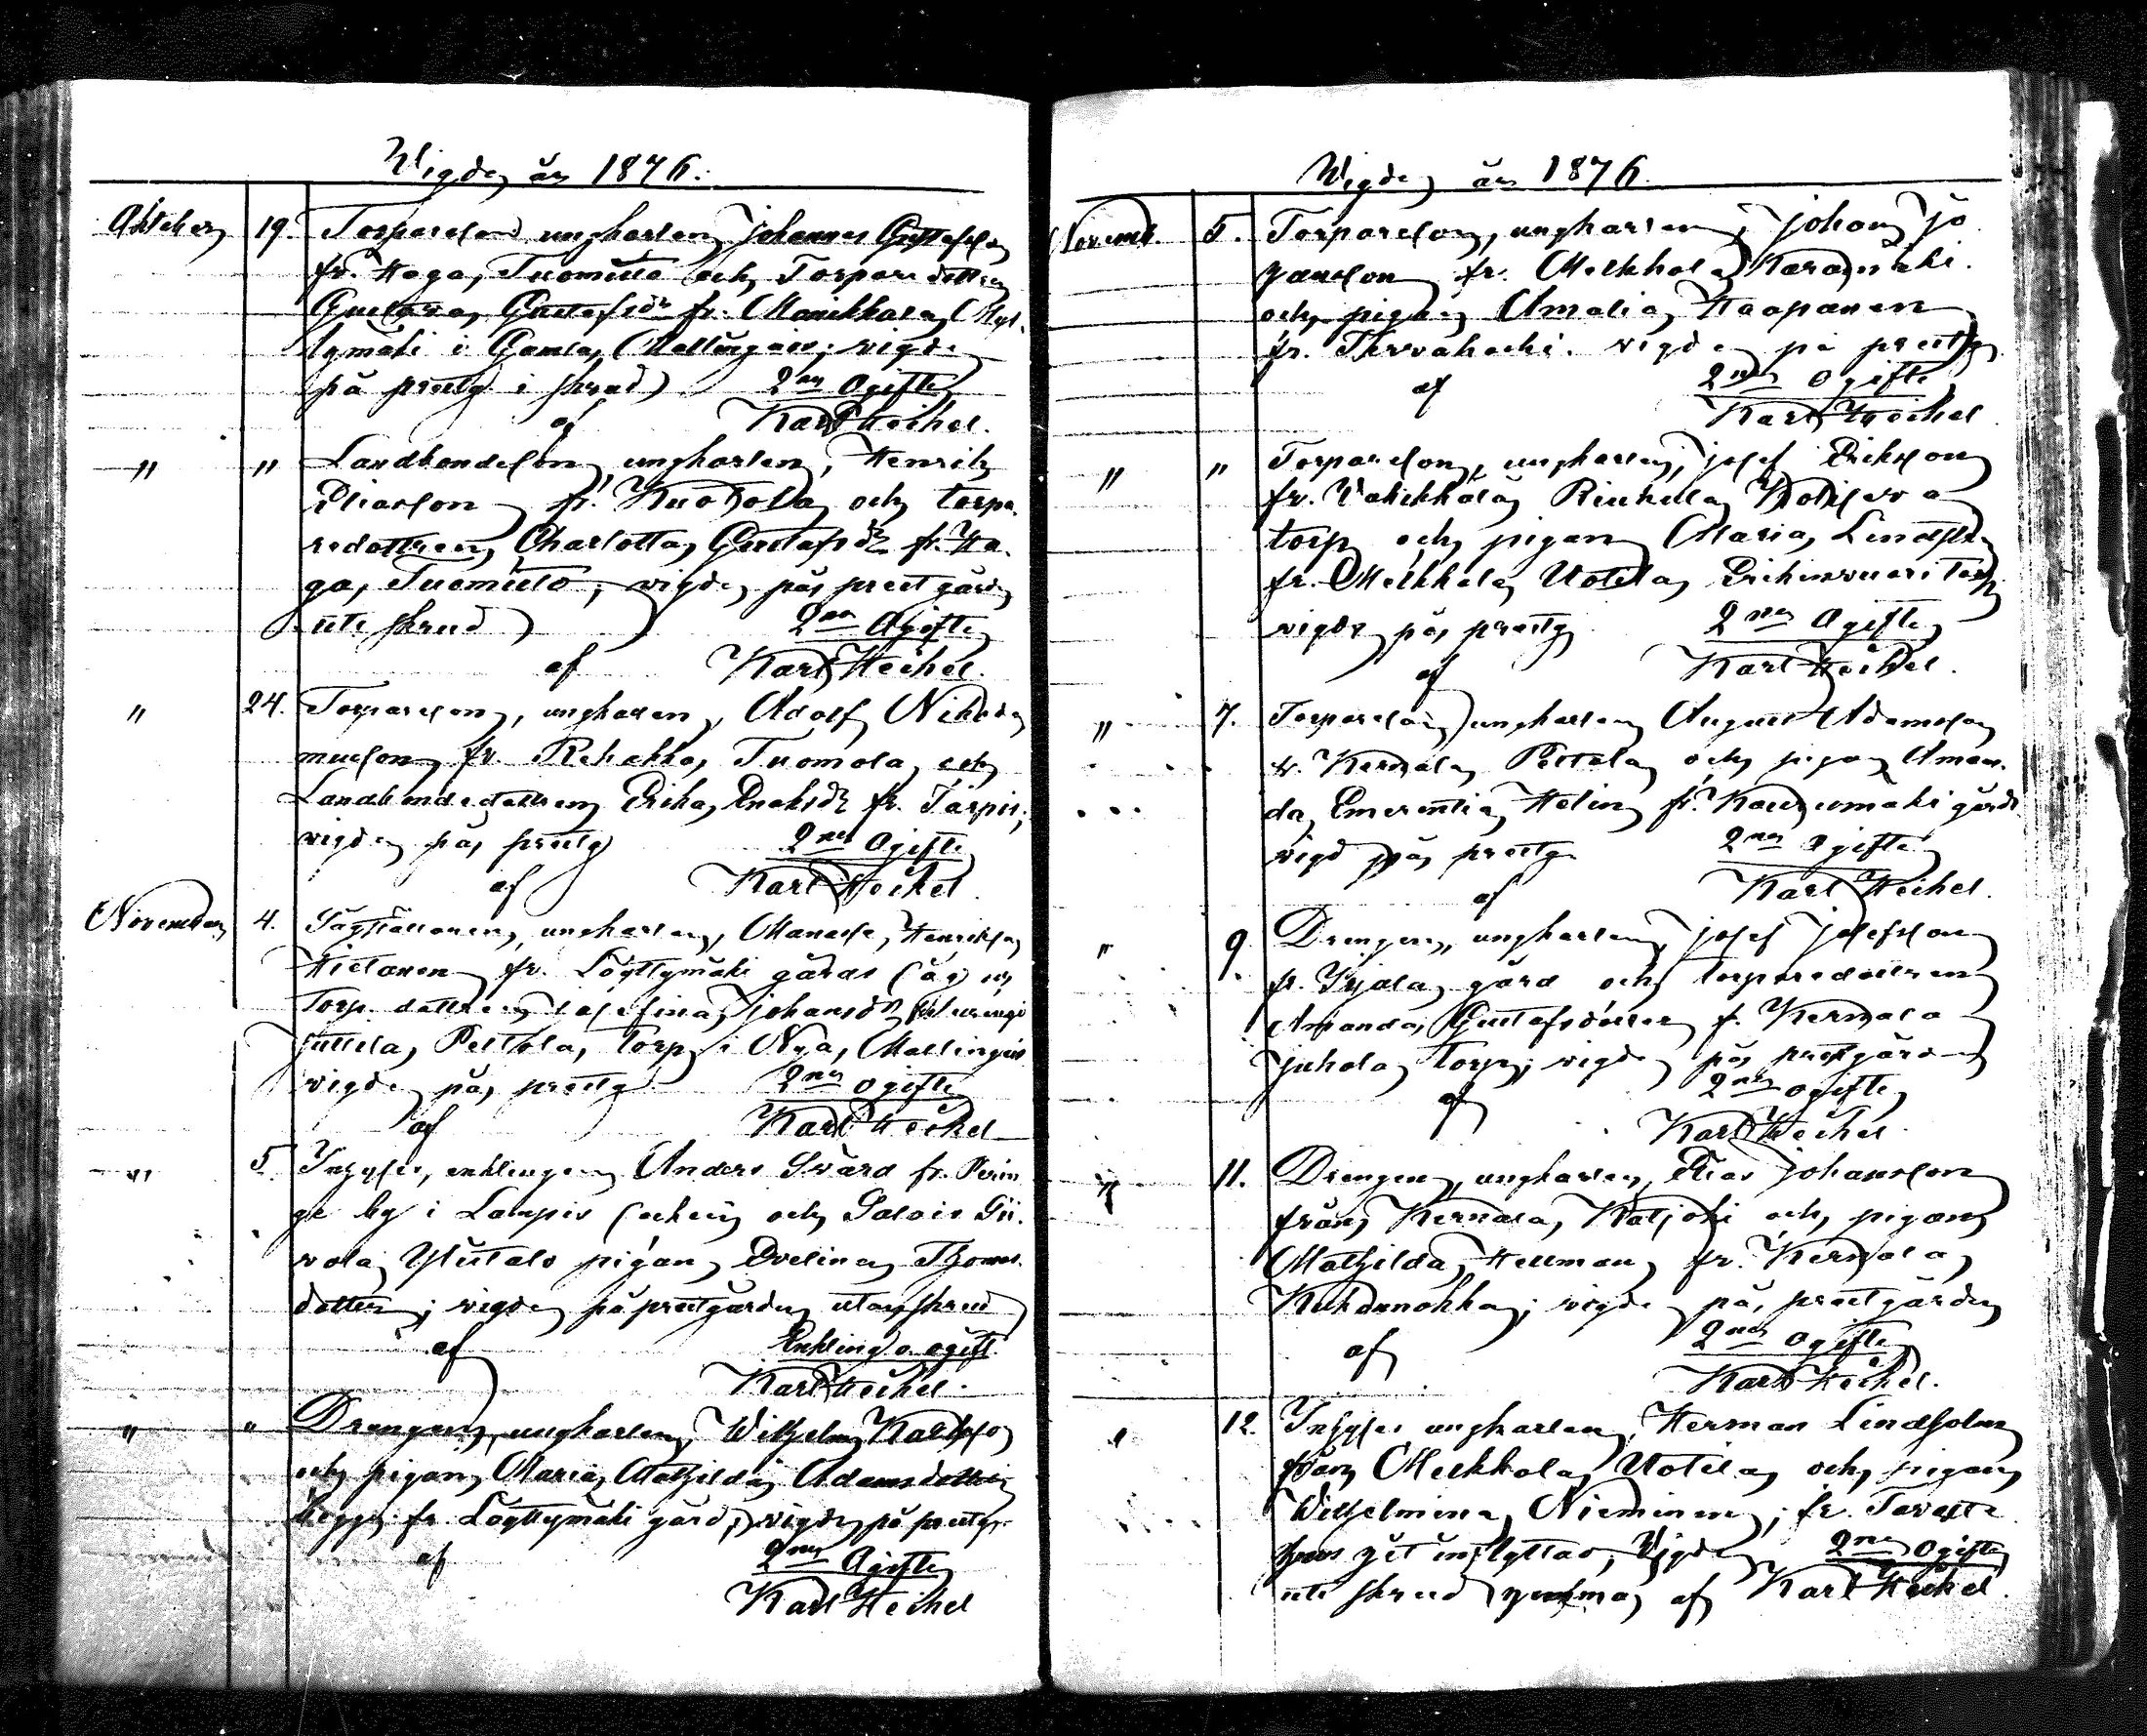 Wigde år 1876.
Oktober 19. Torpareson ungkarlen Johannes Gustafsson
fr. Haga, Tuomisto och Torparedottren
Gustava Gustafsdr fr. Monikkala (Myl-
lymäki i Gamla Mallingais; vigde
på prestg i skrud) 2ne Ogifte
af Karl Heikel.
" " Landbondeson, ungkarlen, Henrik
Eliasson fr. Kuotola och torpa-
redottren Charlotta Gustafsdr fr. Ha-
ga, Tuomisto; vigde på prestgården
i skrud 2ne Ogifte
af Karl Heikel.
" 24. Torpareson, ungkarlen, Adolf Nikode-
musson fr. Rehakka, Tuomola och
Landbondedottren Erika Enoksdr fr. Tarpis;
vigde på prestg 2ne Ogifte
af Karl Heikel
November 4. ungkarlen, Manasse Henriksson
Hietanen fr. Löyttymäki gårds och
Torp. dottren Josefina Johansdr
Jutila, Peltola, Torp i Nya Mallingais
vigde på prestg 2ne ogifte
af Karl Heikel
" 5 Inhyses, enklingen Anders Svärd fr.
ge by i Lampis socken och
vola Ylistalo pigan Evelina Thomas-
dotter; vigde på prestgården utan skrud
af Enkling o. ogift.
Karl Heikel.
" " Drengen, ungkarlen, Wilhelm Karlsson
och pigan Maria Mathilda Adamsdotter
begge fr. Löyttymäki gård; vigde på prestg.
af 2ne Ogifte
Karl Heikel
Wigde år 1876.
Novemb. 5. Torpareson, ungkarlen, Johan Jo-
hansson fr. Melkkola Karanmäki.
och pigan Amalia Haapanen
fr. Tervakoski. vigde på prestg
af 2ne ogifte
Karl Heikel
" " Torpareson, ungkarlen, Josef Eriksson
fr. Vakikkala Riukula
torp och pigan Maria Lindst
fr. Melkkola Uotila Torp;
vigde på prestg 2ne Ogifte
af Karl Heikel.
" 7. Torpareson ungkarlen August Adamsson
fr. Kernala Pettola och pigan Aman-
da Emerentia Helin fr. gård.
vigd på prestg 2ne Ogifte
af Karl Heikel.
" 9. Drengen, ungkarlen Josef Josefsson
fr. Irjala gård och torparedottren
Amanda Gustafsdotter f. Kernala
Juhola Torp; vigde på prestgården
af 2ne ogifte
Karl Heikel.
" 11. Drengen, ungkarlen, Elias Johansson
från Kernala, Katjoki och pigan
Mathilda Hellman fr. Kernala
vigde på prestgården
af 2ne ogifte
Karl Heikel.
" 12. Inhyses ungkarlen, Herman Lindholm
från Melkkola Uotila och pigan
Wilhelmina Nieminen; fr. Tavaste-
hus hit inflyttad; Wigde 2ne Ogifte
skrud af Karl Heikel.